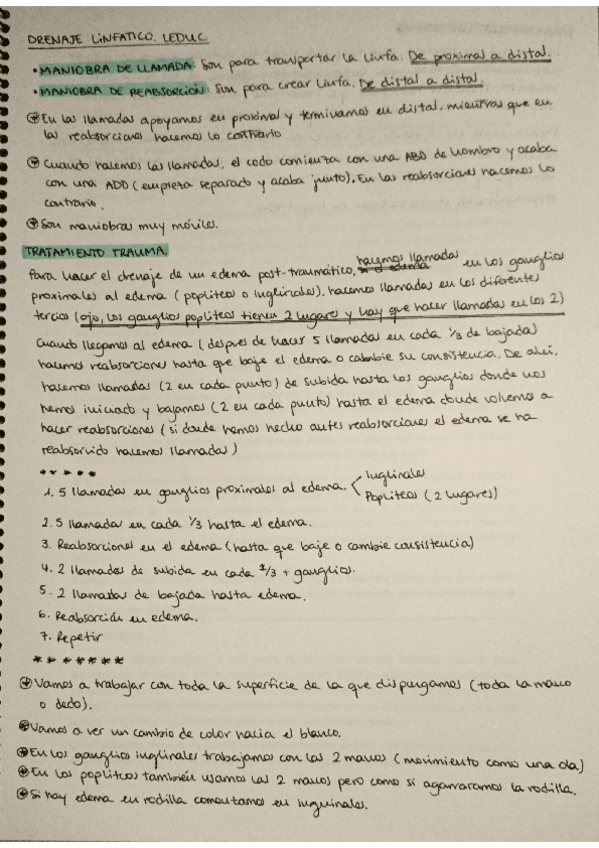 DRENAJE LINFATICO. LEDUC
• MANIOBRA DE LLAMADA: Son para transportar la linfa. De proximal a distal.
• MANIOBRA DE REABSORCIÓN: Son para crear linfa. De distal a distal.
⊕ En las llamadas apoyamos en proximal y terminamos en distal, mientras que en
las reabsorciones hacemos lo contrario
⊕ Cuando hacemos las llamadas, el codo comienza con una ABD de hombro y acaba
con una ADD (empieza separado y acaba junto). En las reabsorciones hacemos lo
contrario.
⊕ Son maniobras muy móviles.
TRATAMIENTO TRAUMA.
Para hacer el drenaje de un edema post-traumático, hacemos llamadas en los ganglios
proximales al edema (popliteos o inglinales), hacemos llamadas en los diferentes
tercios (ojo, los ganglios popliteos tienen 2 lugares y hay que hacer llamadas en los 2)
Cuando llegamos al edema (despues de hacer 5 llamadas en cada 1/3 de bajada)
hacemos reabsorciones hasta que baje el edema o cambie su consistencia. De ahí,
hacemos llamadas (2 en cada punto) de subida hasta los ganglios donde nos
hemos iniciado y bajamos (2 en cada punto) hasta el edema donde volvemos a
hacer reabsorciones (si donde hemos hecho antes reabsorciones el edema se ha
reabsorvido hacemos llamadas)
* * * * *
1. 5 llamadas en ganglios proximales al edema. < Inglinales
Popliteos (2 lugares)
2. 5 llamadas en cada 1/3 hasta el edema.
3. Reabsorciones en el edema (hasta que baje o cambie consistencia)
4. 2 llamadas de subida en cada 1/3 + ganglios.
5. 2 llamadas de bajada hasta edema.
6. Reabsorción en edema.
7. Repetir
* * * * * * *
⊕ Vamos a trabajar con toda la superficie de la que dispongamos (toda la mano
o dedo).
⊕ Vamos a ver un cambio de color hacia el blanco.
⊕ En los ganglios inglinales trabajamos con las 2 manos (movimiento como una ola)
⊕ En los popliteos también usamos las 2 manos pero como si agarraramos la rodilla.
⊕ Si hay edema en rodilla comentamos en inguinales.